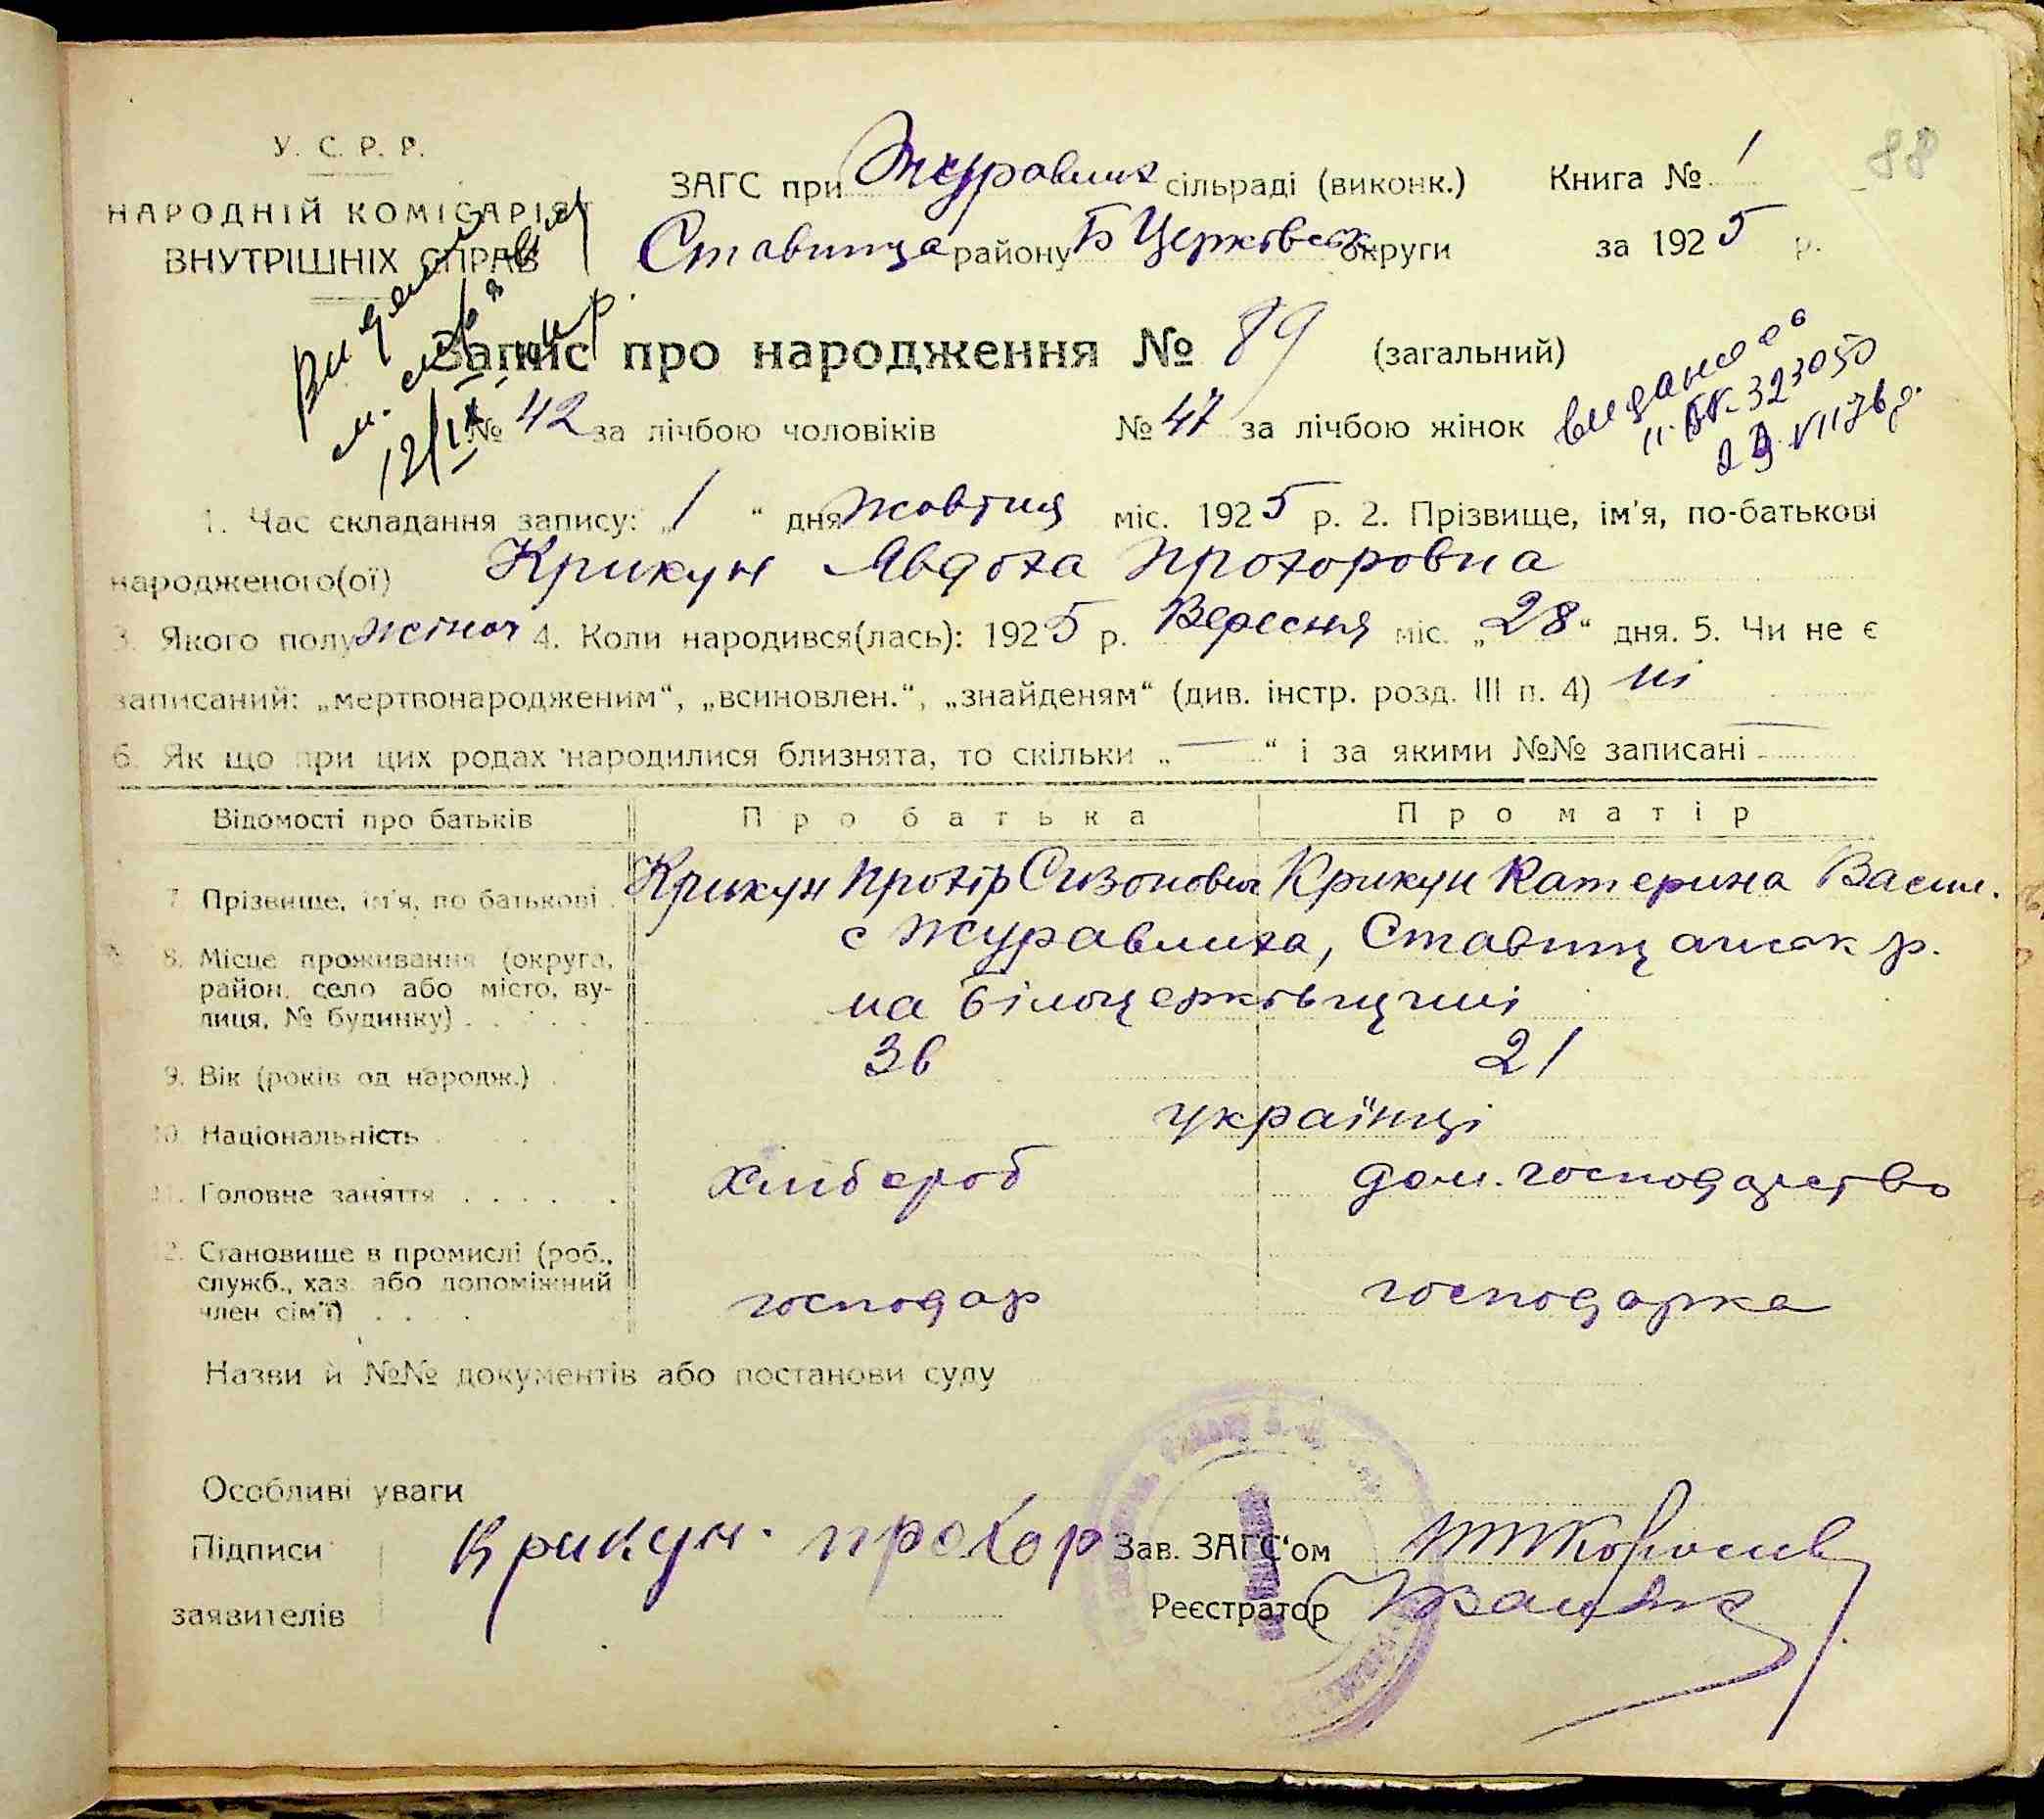 88
У. С. Р. Р.
НАРОДНІЙ КОМІСАРІЯТ
ВНУТРІШНІХ СПРАВ
ЗАГС при Журавлих сільраді (виконк.) Книга № 1
Ставища району Б Церківськ округи за 1925 р.
Запис про народження № 89 (загальний)
№ 42 за лічбою чоловіків № 47 за лічбою жінок
видано
323050
1. Час складання запису: „1“ дня жовтня міс. 1925 р. 2. Прізвище, ім'я, по-батькові
народженого(ої) Крикун Явдоха Прохоровна
3. Якого полу жіноч 4. Коли народився(лась): 1925 р. Вересня міс. „28“ дня. 5. Чи не є
записаний: „мертвонародженим“, „всиновлен.“, „знайденям“ (див. інстр. розд. III п. 4) ні
6. Як що при цих родах народилися близнята, то скільки „—“ і за якими №№ записані —
Відомості про батьків Про батька Про матір
7. Прізвище, ім'я, по батькові Крикун Прохір Сизонович Крикун Катерина Васил.
8. Місце проживання (округа, район, село або місто, ву-
лиця, № будинку) с Журавлиха, Ставищанськ р.
на Білоцерківщині
9. Вік (років од народж.) 36 21
10. Національність українці
11. Головне заняття хлібороб дом. господарство
12. Становище в промислі (роб.,
служб., хаз. або допоміжний
член сім'ї) господар господарка
Назви й №№ документів або постанови суду
Особливі уваги
Підписи Крикун. прохор Зав. ЗАГС'ом
заявителів Реєстратор